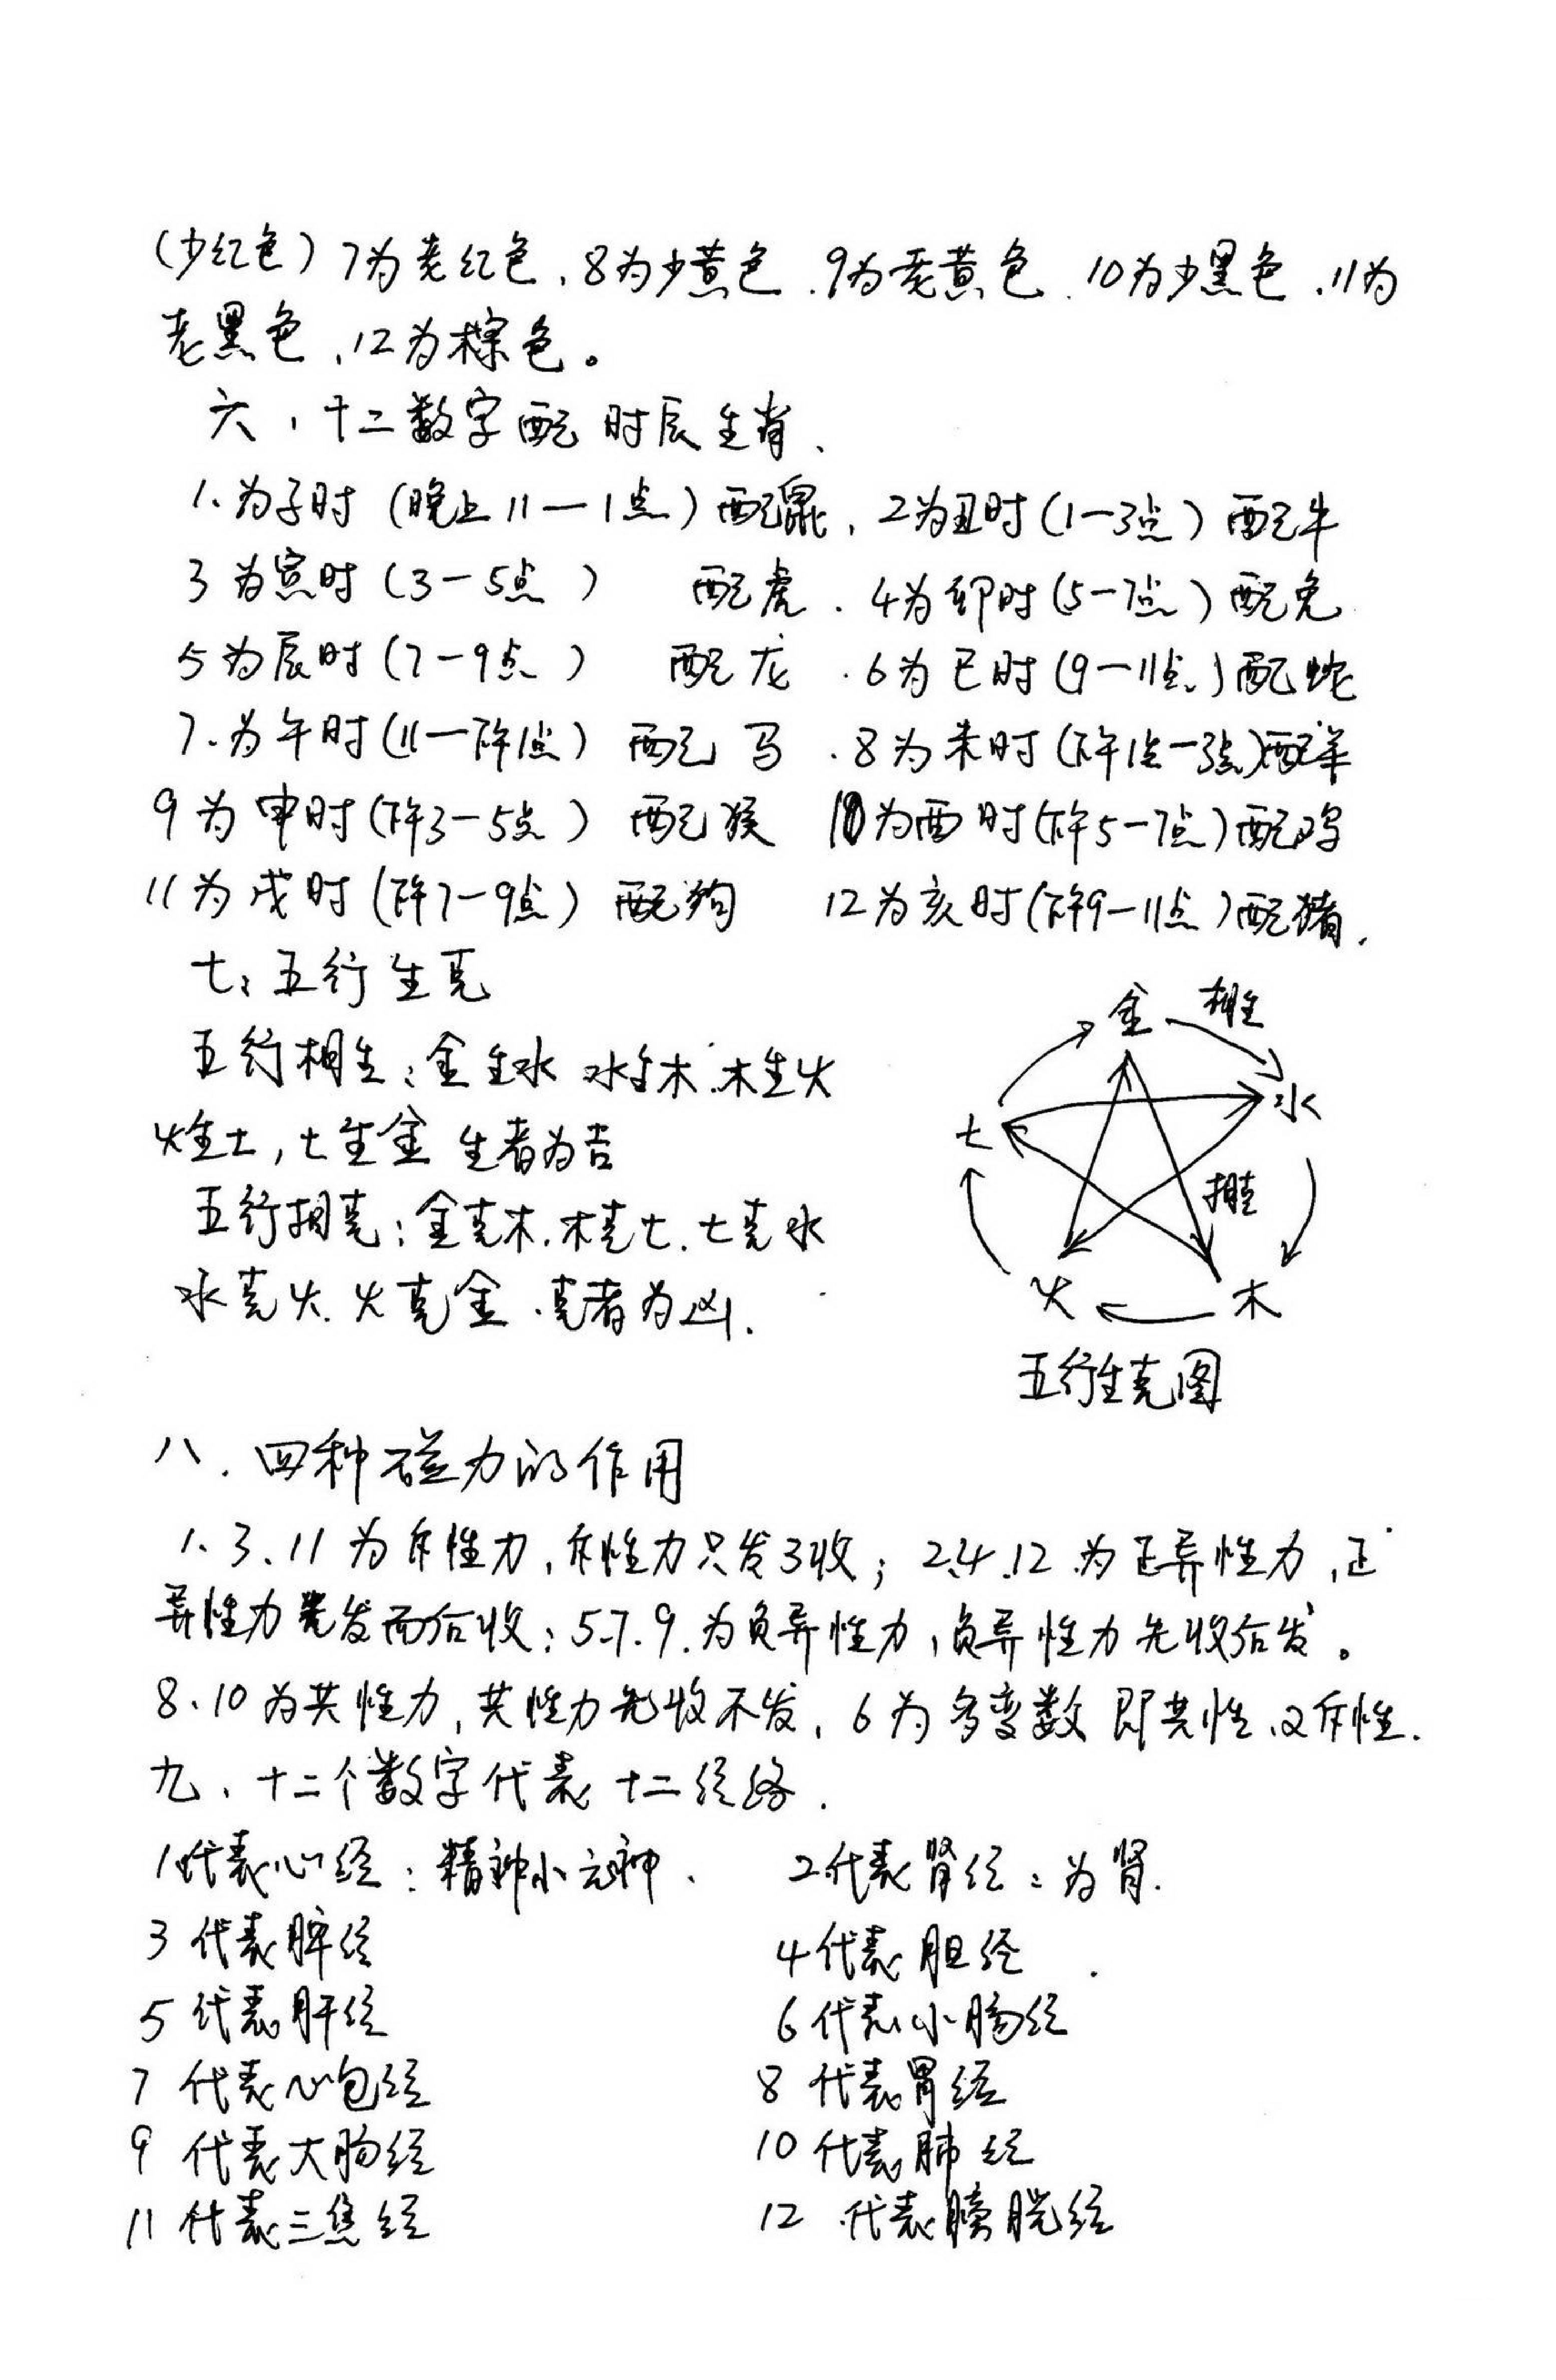 (少红色)7为老红色、8为少黄色、9为老黄色、10为少黑色、11为
老黑色、12为棕色。
六、十二数字配时辰生肖、
1、为子时(晚上11—1点)配鼠、2为丑时(1—3点)配牛
3为寅时(3—5点)配虎、4为卯时(5—7点)配兔
5为辰时(7—9点)配龙、6为巳时(9—11点)配蛇
7、为午时(11—下午1点)配马、8为未时(下午1点—3点)配羊
9为申时(下午3—5点)配猴 10为酉时(下午5—7点)配鸡
11为戌时(下午7—9点)配狗 12为亥时(下午9—11点)配猪.
七:五行生克
五行相生:金生水 水生木.木生火
火生土,土生金 生者为吉
五行相克:金克木.木克土.土克水
水克火.火克金.克者为凶.
金 相生
水
土
相克
火 木
五行生克图
八.四种磁力的作用
1、3、11为斥性力,斥性力只发不收;2.4.12为正异性力,正
异性力先发而后收;5.7.9.为负异性力,负异性力先收后发。
8、10为共性力,共性力先收不发,6为多变数 即共性、又斥性.
九、十二个数字代表十二经络.
1代表心经:精神小元神、 2代表肾经:为肾.
3代表脾经 4代表胆经
5代表肝经 6代表小肠经
7代表心包经 8代表胃经
9代表大肠经 10代表肺经
11代表三焦经 12代表膀胱经